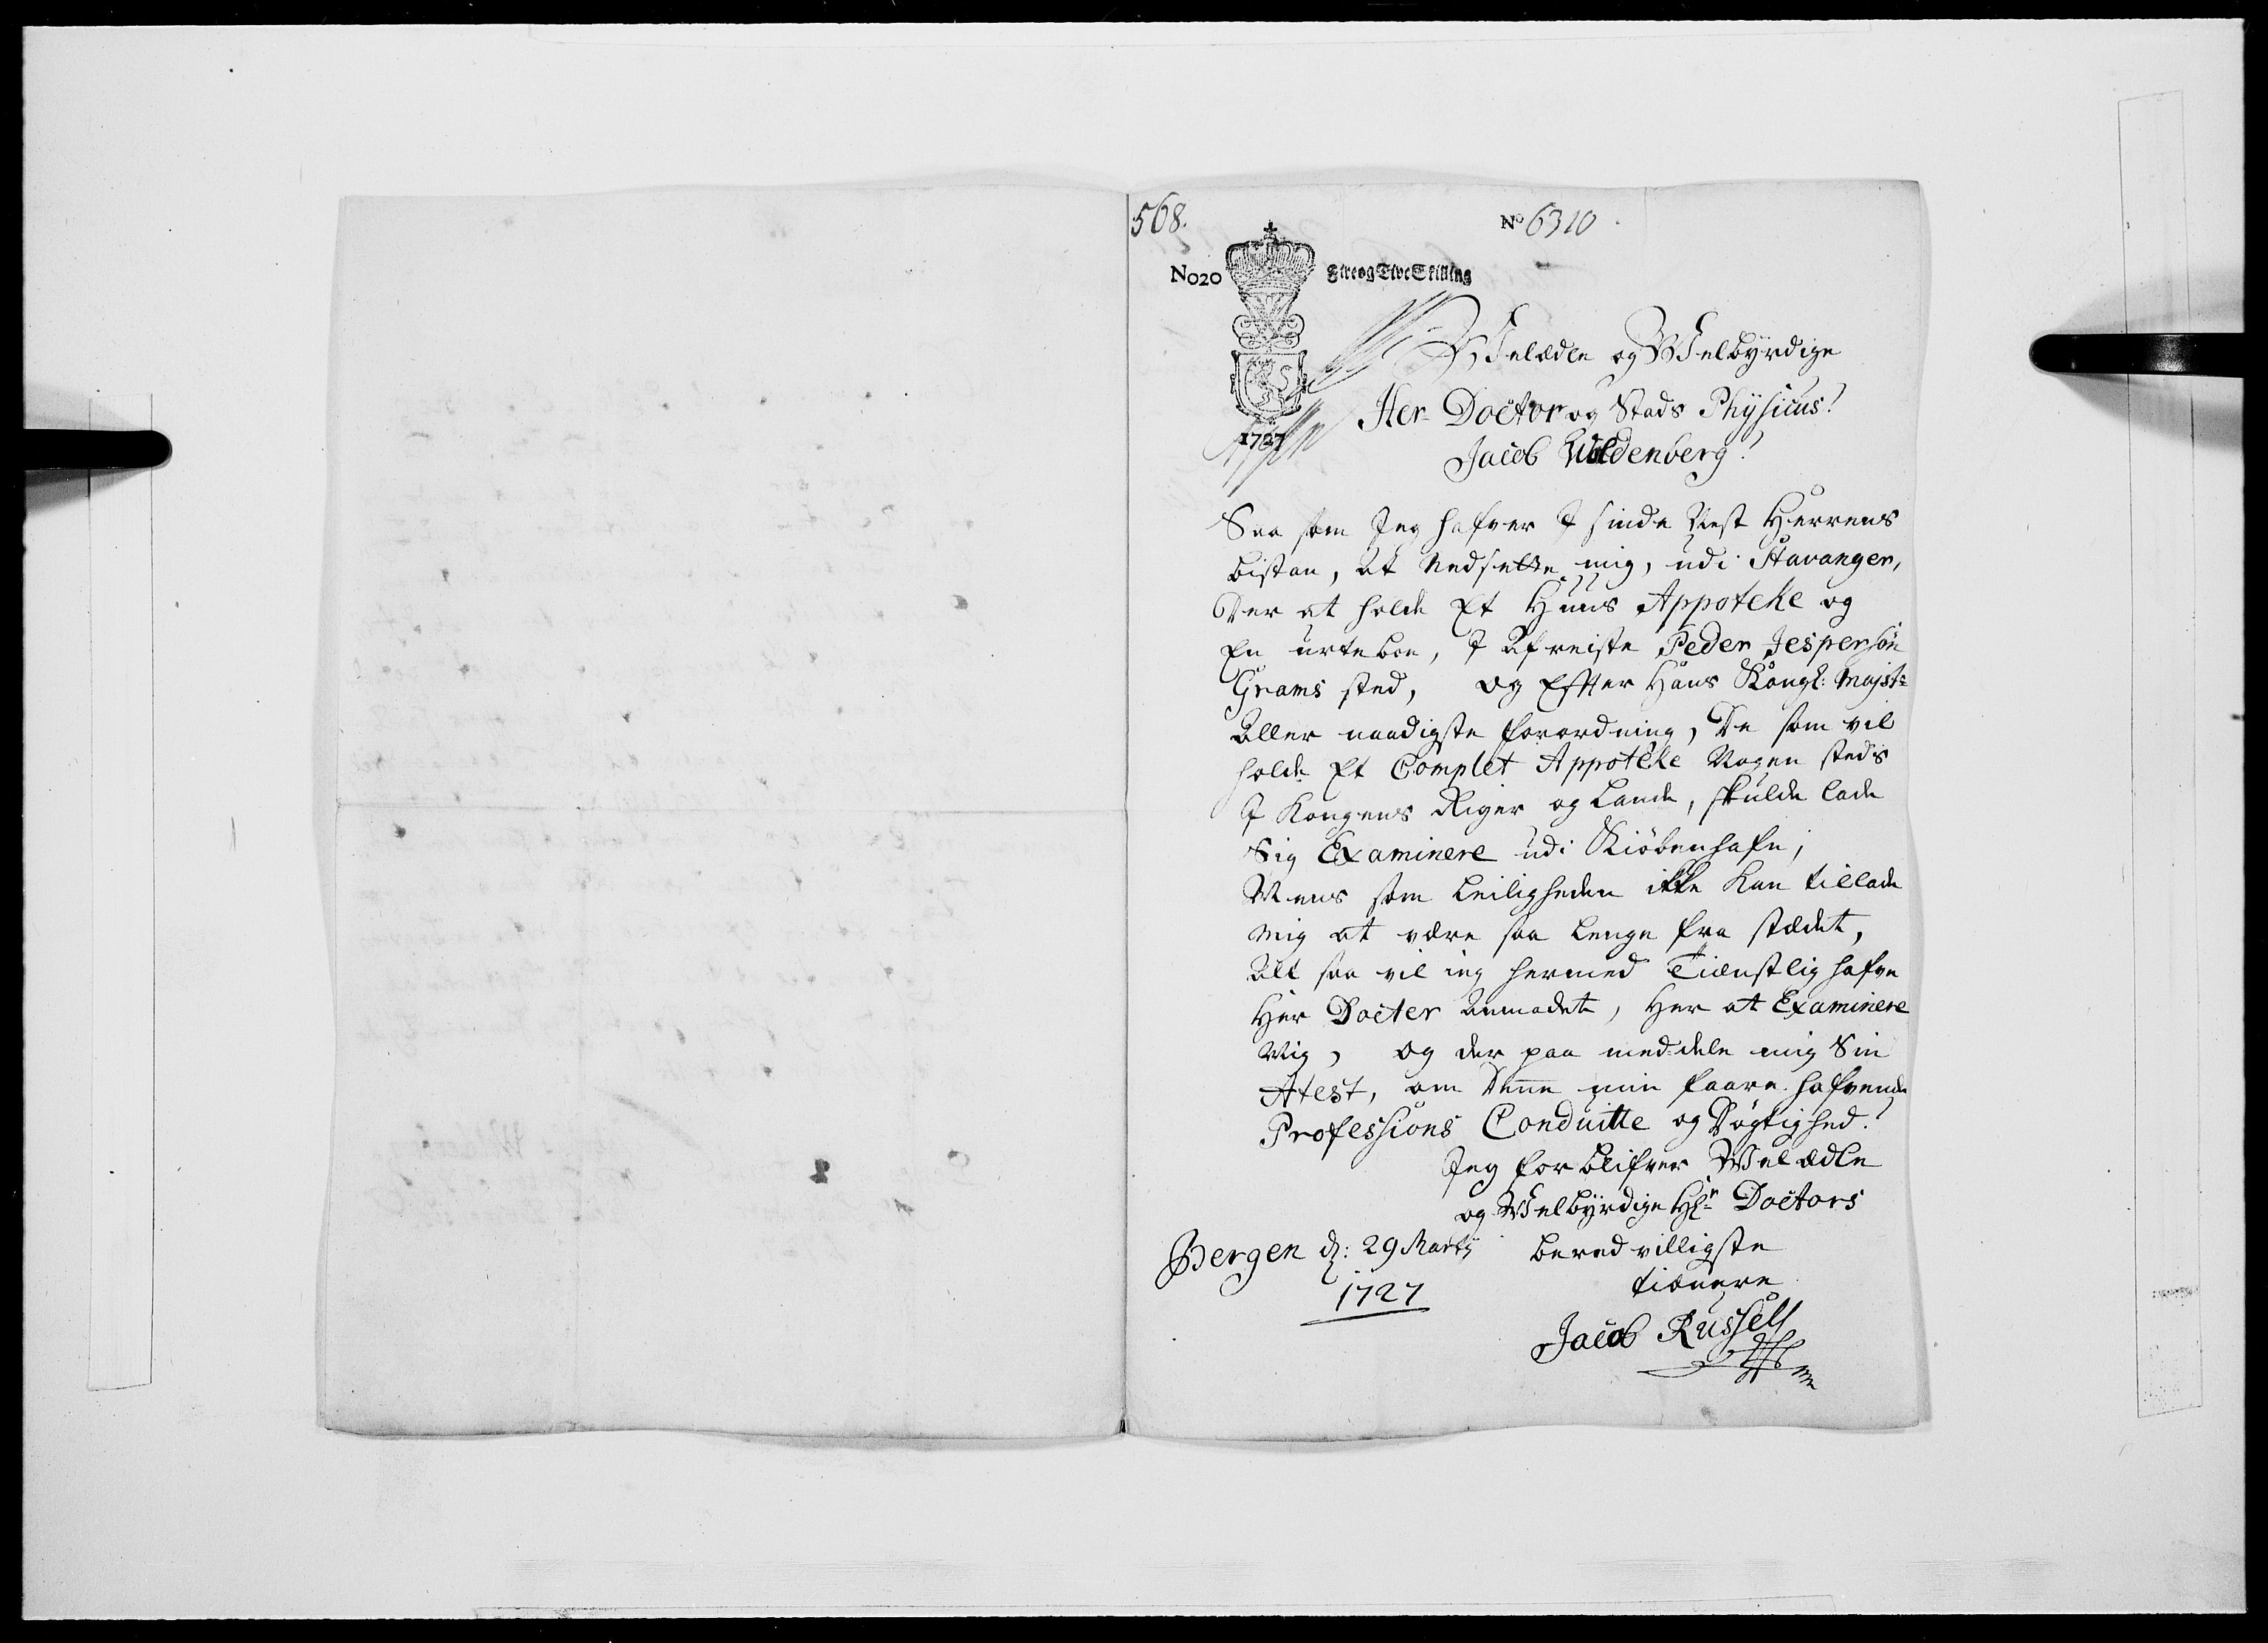 568.
No 6310
No20
Fire og Tive Skilling
1727
WElædle og WElbÿrdige
Her Doctor og Stads Phÿsicus!
Jacob Woldenberg!
Saa som Jeg hafver I sinde Nest Herrens
bistan, At Nedsette mig, udi Stavanger,
Der at holde Et Huus Appoteke og
En urteboe, I Afreiste Peder Jespersøn
Grams sted, og Effter Hans Kongl: Majsts
Aller naadigste forordning, De som vil
holde Et Complet Appoteke Nogen steds
I Kongens Riger og Lande, skulde lade
Sig Examinere udi Kiöbenhafn,
Mens som Leiligheden ikke Kan tillade
Mig at være saa Lenge fra stædet,
Alt saa vil ieg hermed Tienstlig hafve
Her Docter Anmodet, Her at Examinere
Mig, og der paa meddele mig Sin
Atest, om Denne min faare hafvende
Professions Conduitte og Dögtighed!
Jeg forblifver WelÆdle
og WElbÿrdige Hr Doctors
Bergen d: 29 Martÿ
1727
beredvilligste
tienere
Jacob Russell